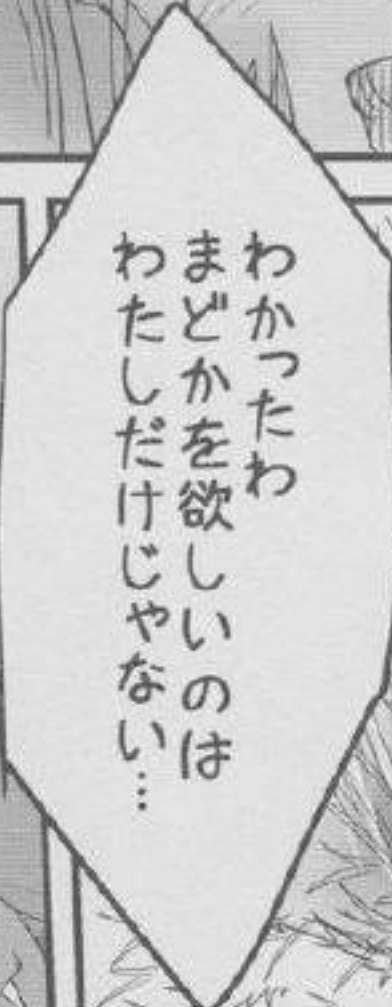 わかったわ
まどかを欲しいのは
わたしだけじゃない…